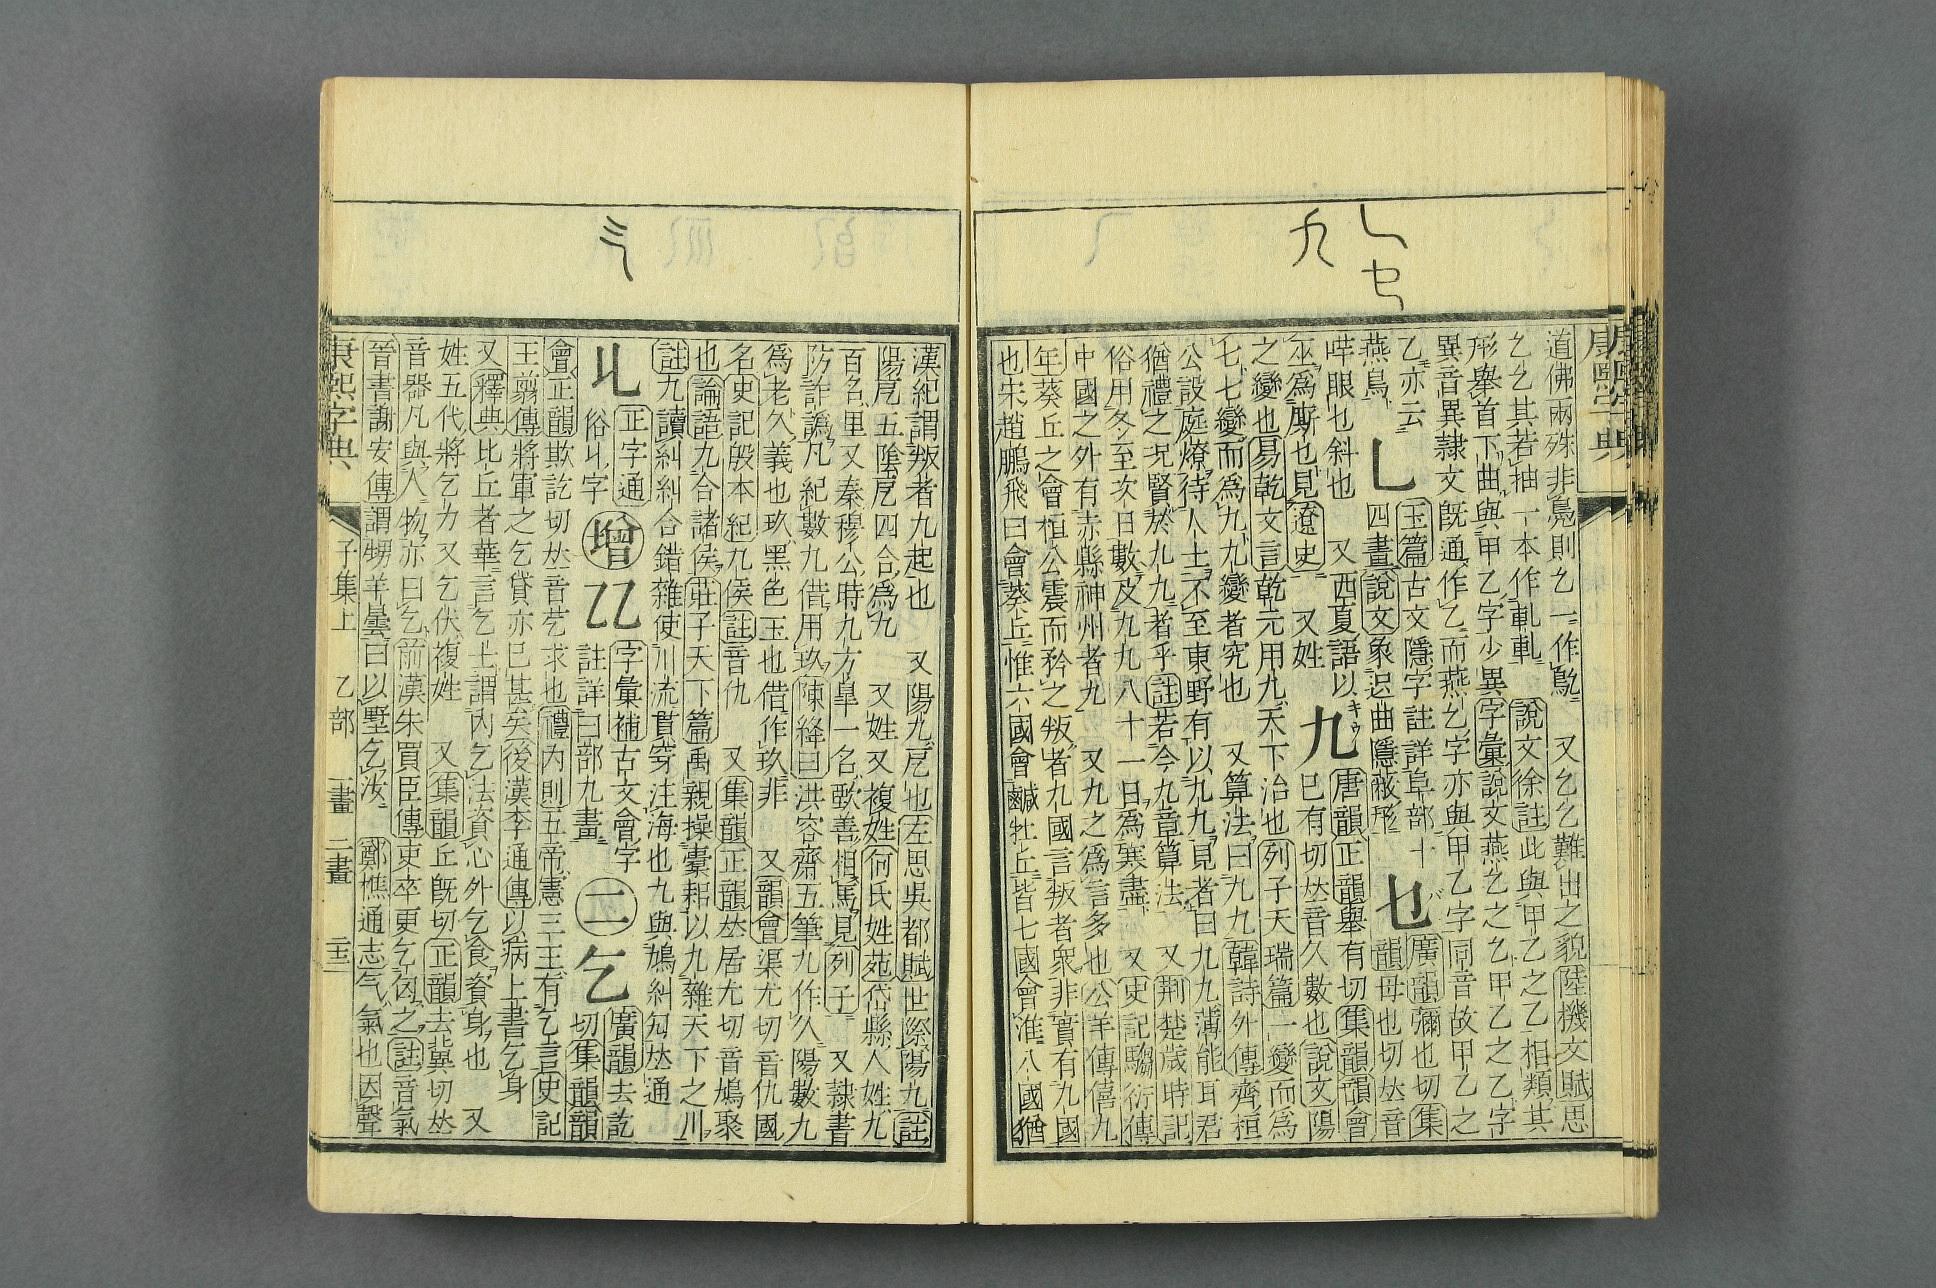 康熙字典
乚
乜
九
道佛兩殊非鳧則乞一作鳦 又乞乞難出之貌陸機文賦思
乞乞其若抽一本作軋軋 說文徐註此與甲乙之乙相類其
形舉首下曲與甲乙字少異字彙說文燕乞之乞甲乙之乙字
異音異隸文旣通作乙而燕乞字亦與甲乙字同音故甲乙之
乙亦云
燕鳥
乚
玉篇古文隱字註詳阜部十
四畫說文象迟曲隱蔽形
乜
廣韻彌也切集
韻母也切𠀤音
哶眼也斜也 又西夏語以
巫爲廝也見遼史 又姓
キウ
九
唐韻正韻舉有切集韻韻會
巳有切𠀤音久數也說文陽
之變也易乾文言乾元用九天下治也列子天瑞篇一變而爲
七七變而爲九九變者究也 又算法曰九九韓詩外傳齊桓
公設庭燎待人士不至東野有以九九見者曰九九薄能耳君
猶禮之况賢於九九者乎註若今九章算法 又荆楚歲時記
俗用冬至次日數及九九八十一日爲寒盡 又史記騶衍傳
中國之外有赤縣神州者九 又九之爲言多也公羊傳僖九
年葵丘之會桓公震而矜之叛者九國言叛者衆非實有九國
也宋趙鵬飛曰會葵丘惟六國會鹹牡丘皆七國會淮八國猶
气
漢紀謂叛者九起也 又陽九戹也左思吳都賦世際陽九註
陽戹五陰戹四合爲九 又姓又複姓何氏姓苑岱縣人姓九
百名里又秦穆公時九方皐一名歅善相馬見列子 又隸書
防詐譌凡紀數九借用玖陳繹曰洪容齋五筆九作久陽數九
爲老久義也玖黑色玉也借作玖非 又韻會渠尤切音仇國
名史記殷本紀九侯註音仇 又集韻正韻𠀤居尤切音鳩聚
也論語九合諸侯莊子天下篇禹親操橐耜以九雜天下之川
註九讀糾糾合錯雜使川流貫穿注海也九與鳩糾勼𠀤通
丩
正字通
俗丩字
增
𠃏
字彙補古文會字
註詳曰部九畫
二
乞
廣韻去訖
切集韻韻
會正韻欺訖切𠀤音乞求也禮內則五帝憲三王有乞言史記
王翦傳將軍之乞貸亦已甚矣後漢李通傳以病上書乞身
又釋典比丘者華言乞士謂內乞法資心外乞食資身也 又
姓五代將乞力又乞伏複姓 又集韻丘旣切正韻去冀切𠀤
音器凡與人物亦曰乞前漢朱買臣傳吏卒更乞匃之註音氣
晉書謝安傳謂甥羊曇曰以墅乞汝 鄭樵通志气氣也因聲
康熙字典 子集上 乙部 一畫 二畫